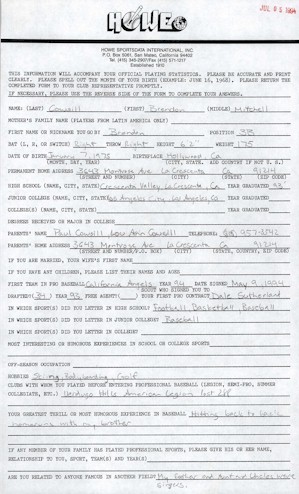 JUL 01 1994
HOWE
HOWE SPORTSDATA INTERNATIONAL, INC.
P.O. Box 5061, San Mateo, California 94402
Tel. (415) 345-2907/Fax (415) 571-1217
Established 1910
THIS INFORMATION WILL ACCOMPANY YOUR OFFICIAL PLAYING STATISTICS. PLEASE BE ACCURATE AND PRINT
CLEARLY. PLEASE SPELL OUT THE MONTH OF YOUR BIRTH (EXAMPLE: JUNE 16, 1968). PLEASE RETURN THE
COMPLETED FORM TO YOUR CLUB REPRESENTATIVE PROMPTLY.
IF NECESSARY, PLEASE USE THE REVERSE SIDE OF THE FORM TO COMPLETE YOUR ANSWERS.
NAME: (LAST) Cowsill (FIRST) Brendon (MIDDLE) Mitchell
MOTHER'S FAMILY NAME (PLAYERS FROM LATIN AMERICA ONLY)
FIRST NAME OR NICKNAME YOU GO BY Brendon POSITION 3B
BAT (L, R, OR SWITCH) Right THROW Right HEIGHT 6'2" WEIGHT 175
DATE OF BIRTH January 7, 1975 BIRTHPLACE Hollywood Ca
(MONTH, DAY, YEAR) (CITY, STATE, AND COUNTRY IF NOT U.S.)
PERMANENT HOME ADDRESS 3643 Montrose Ave La Crescenta Ca 91214
(STREET AND NUMBER) (CITY) (STATE) (ZIP CODE)
HIGH SCHOOL (NAME, CITY, STATE) Crescenta Valley La Crescenta, Ca YEAR GRADUATED 93'
JUNIOR COLLEGE (NAME, CITY, STATE) Los Angeles City Los Angeles, Ca YEAR GRADUATED
COLLEGE(S) (NAME, CITY, STATE) YEAR GRADUATED
DEGREES RECEIVED OR MAJOR IN COLLEGE
PARENTS' NAME Paul Cowsill Lou Ann Cowsill TELEPHONE (818) 957-8142
PARENTS' HOME ADDRESS 3643 Montrose Ave La Crescenta Ca 91214
(STREET AND NUMBER/P.O. BOX) (CITY) (STATE, COUNTRY, ZIP CODE)
IF YOU ARE MARRIED, YOUR WIFE'S FIRST NAME
IF YOU HAVE ANY CHILDREN, PLEASE LIST THEIR NAMES AND AGES
FIRST TEAM IN PRO BASEBALL California Angels YEAR 94 DATE SIGNED May 9, 1994
SCOUT WHO SIGNED YOU TO
DRAFTED YEAR 93 FREE AGENT( ) YOUR FIRST PRO CONTRACT Dale Sutherland
IN WHICH SPORT(S) DID YOU LETTER IN HIGH SCHOOL? Football, Basketball, Baseball
IN WHICH SPORT(S) DID YOU LETTER IN JUNIOR COLLEGE? Baseball
IN WHICH SPORT(S) DID YOU LETTER IN COLLEGE?
MOST INTERESTING OR HUMOROUS EXPERIENCES IN SCHOOL OR COLLEGE SPORTS
OFF-SEASON OCCUPATION
HOBBIES Skiing, Bodyboarding, Golf
CLUBS WITH WHOM YOU PLAYED BEFORE ENTERING PROFESSIONAL BASEBALL (LEGION, SEMI-PRO, SUMMER
COLLEGIATE, ETC.) Verdugo Hills American Legion Post 288
YOUR GREATEST THRILL OR MOST HUMOROUS EXPERIENCE IN BASEBALL Hitting back to back
homeruns with my brother
IF ANY MEMBER OF YOUR FAMILY HAS PLAYED PROFESSIONAL SPORTS, PLEASE GIVE HIS OR HER NAME,
RELATIONSHIP TO YOU, SPORT, TEAM(S) AND YEAR(S)
ARE YOU RELATED TO ANYONE FAMOUS IN ANOTHER FIELD? My Father and Aunt and Uncles were
singers.